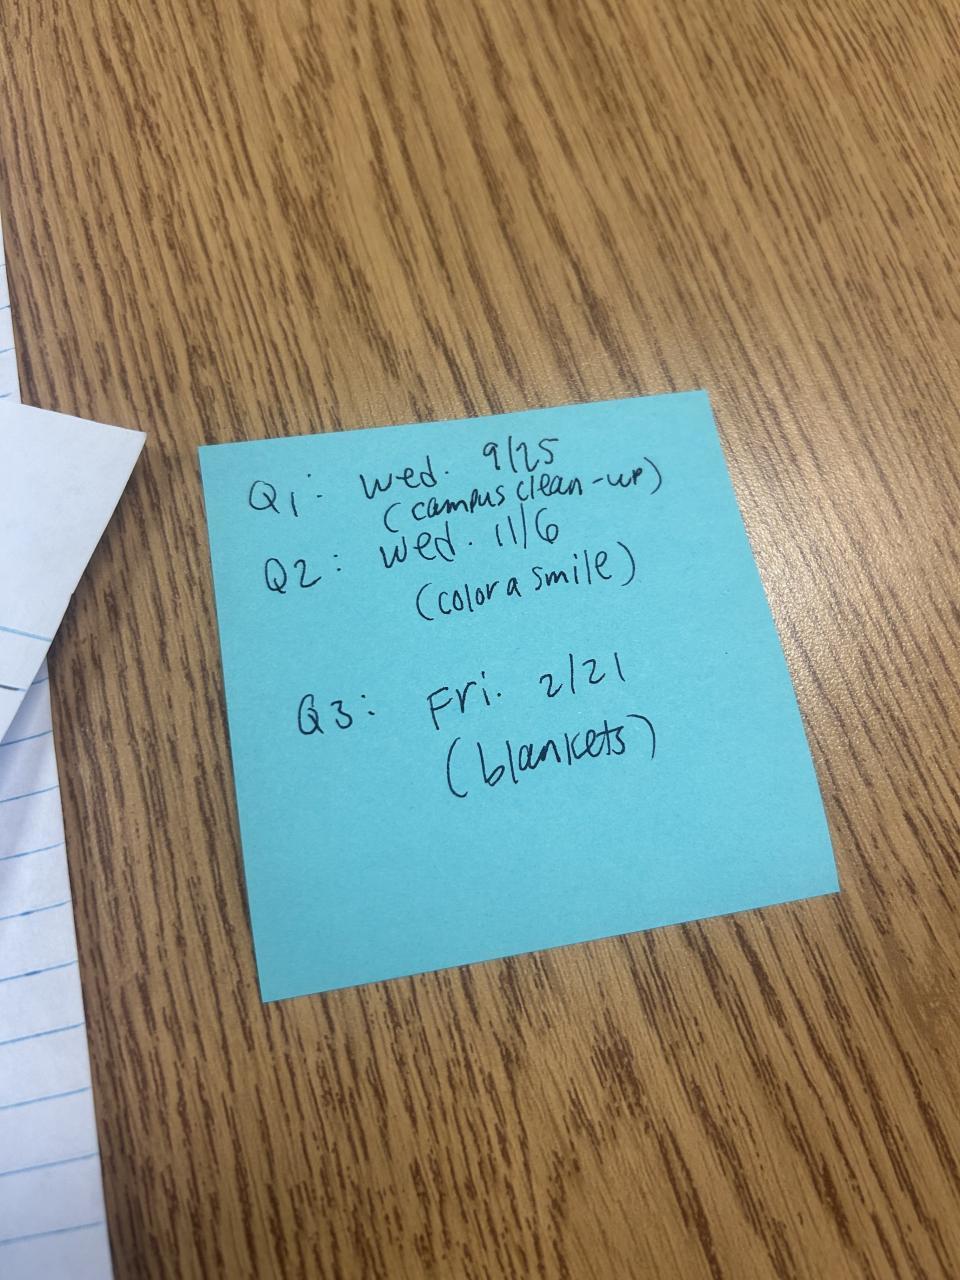 Q1: Wed. 9/25
(campus clean-up)
Q2: Wed. 11/6
(color a smile)
Q3: Fri. 2/21
(blankets)